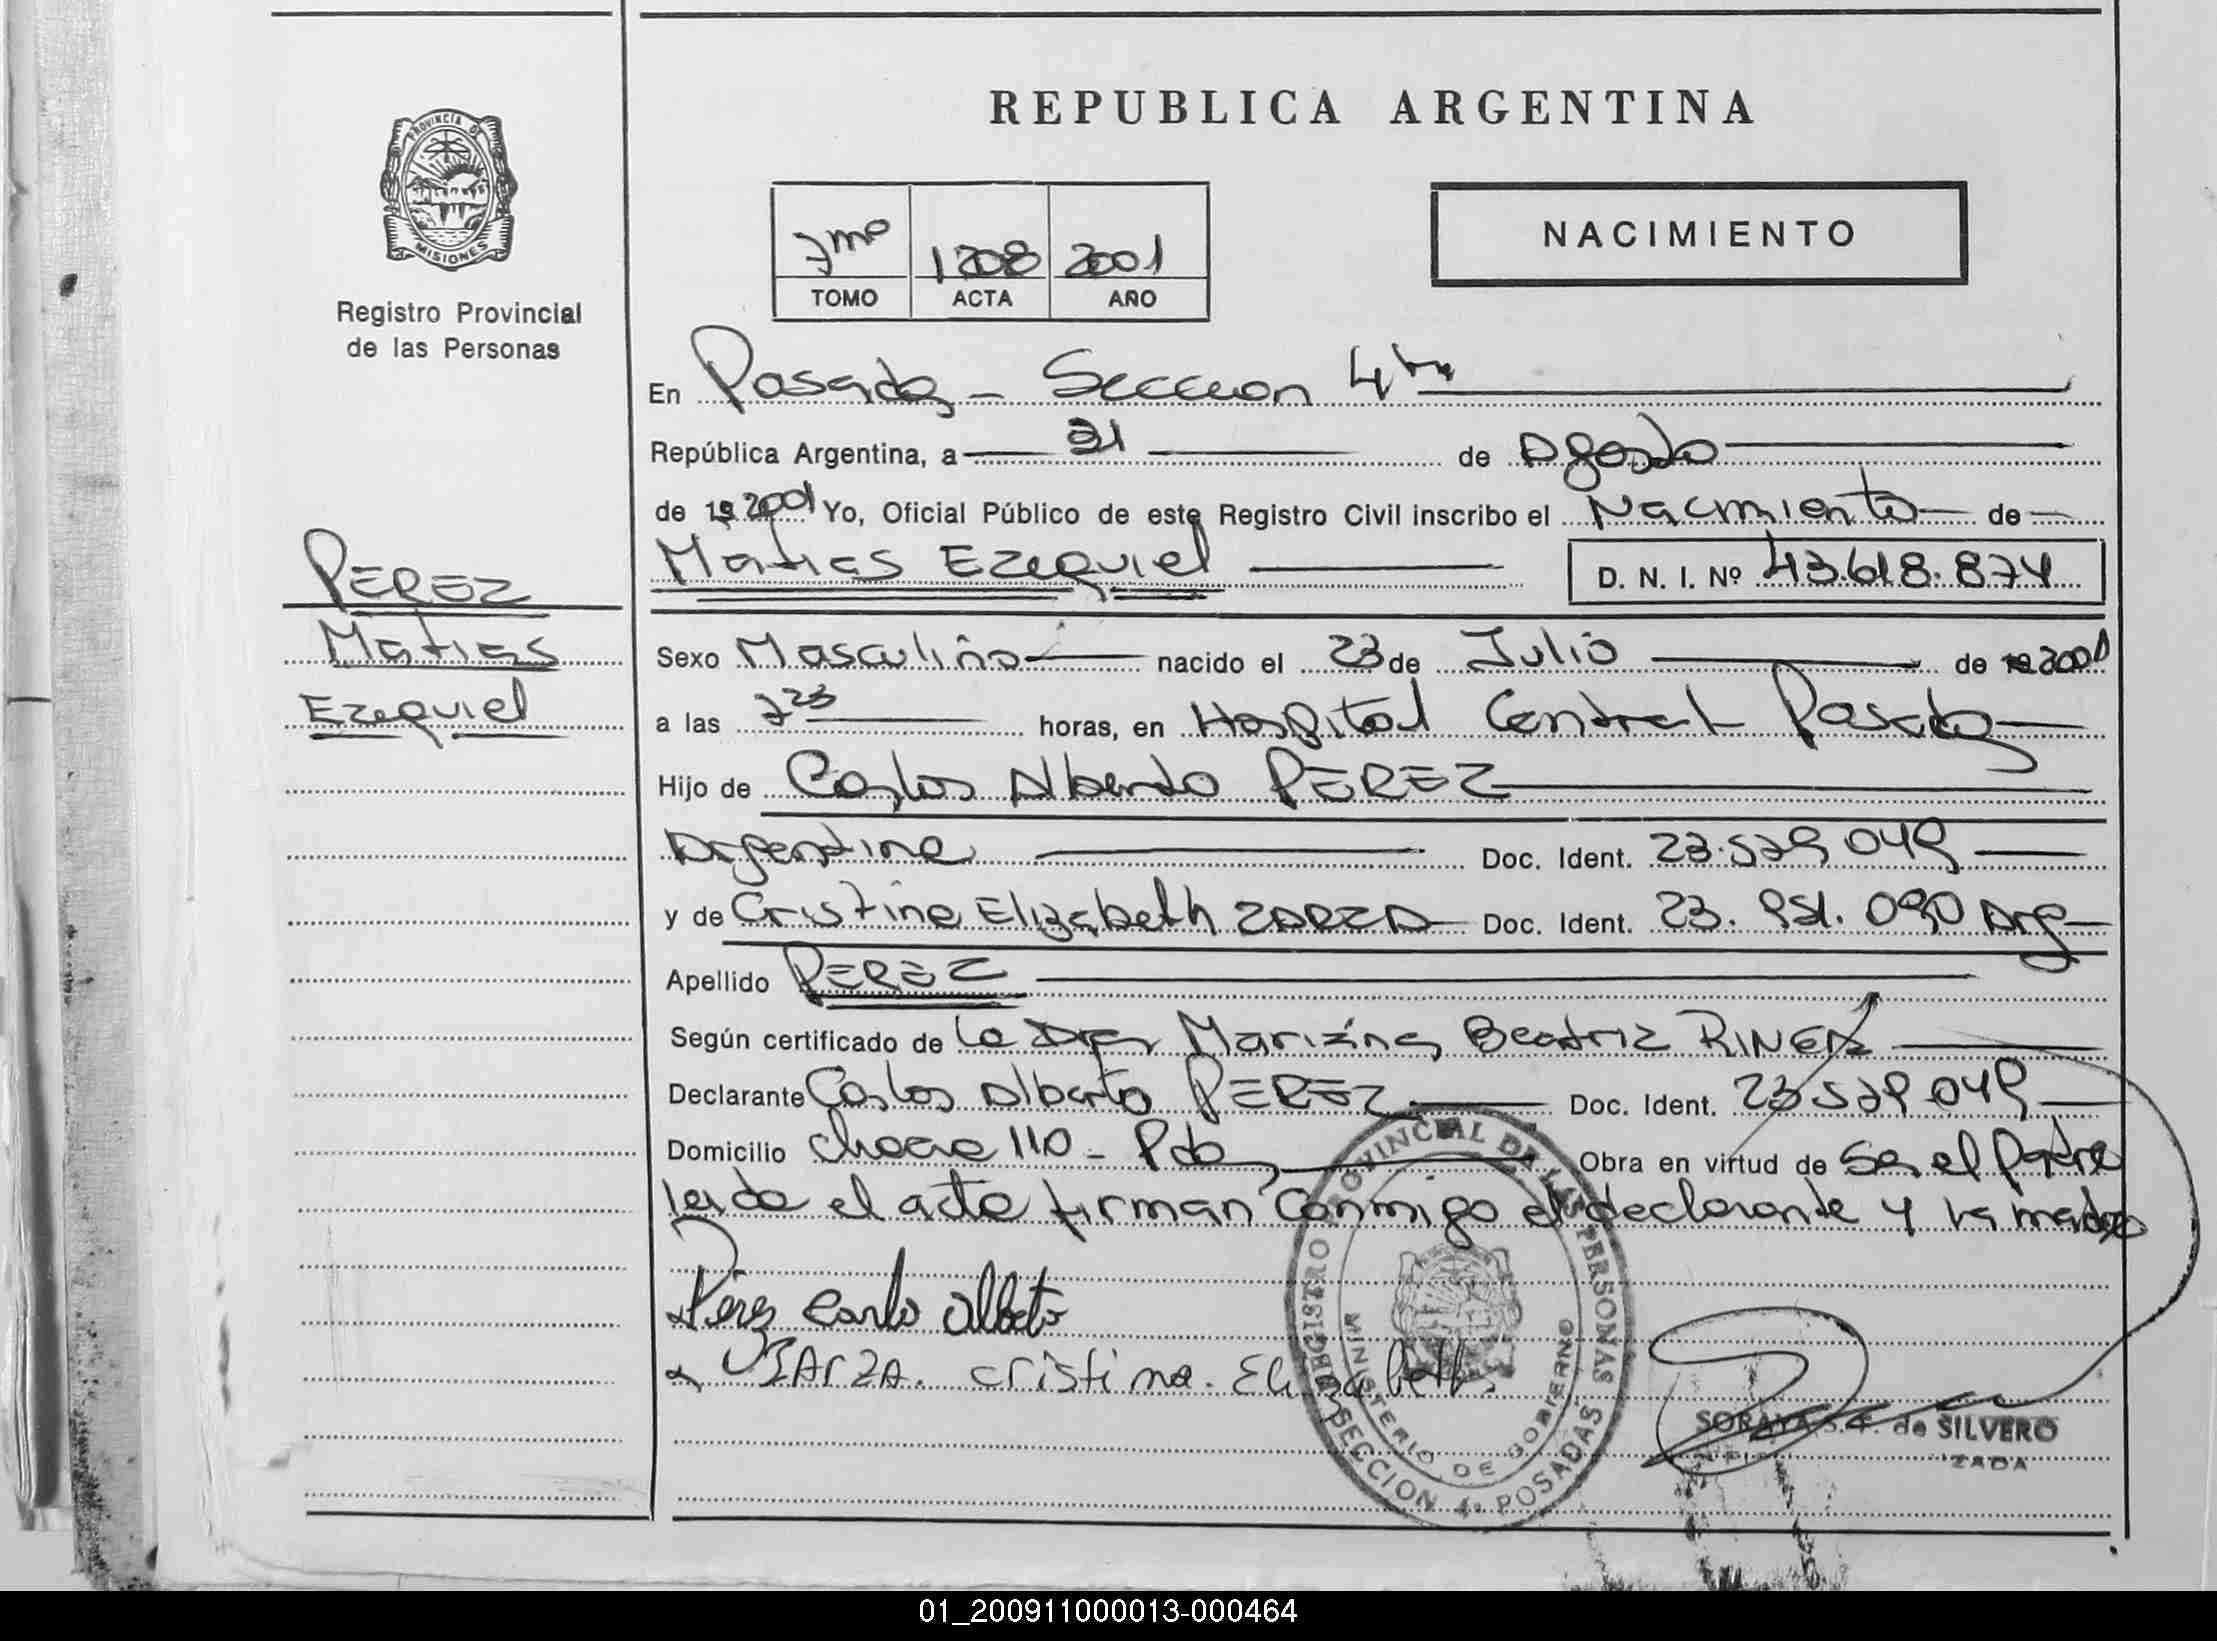 PROVINCIA DE
MISIONES
Registro Provincial
de las Personas
PEREZ
Matias
Ezequiel
REPUBLICA ARGENTINA
7mo 1208 2001
TOMO ACTA AÑO
NACIMIENTO
En Posadas - Seccion 4ta
República Argentina, a 21 de Agosto
de 19 2001 Yo, Oficial Público de este Registro Civil inscribo el Nacimiento de
Matias Ezequiel D. N. I. Nº 43.618.874
Sexo Masculino nacido el 23 de Julio de 19 2001
a las 7 23 horas, en Hospital Central Posadas
Hijo de Carlos Alberto PEREZ
Argentino Doc. Ident. 23.529.049
y de Cristina Elizabeth ZARZA Doc. Ident. 23.951.090 Arg
Apellido PEREZ
Según certificado de la Dra Beatriz
Declarante Carlos Alberto PEREZ Doc. Ident. 23.529.049
Domicilio chacra 110 - Pdas Obra en virtud de Ser el Padre
leida el acta firman conmigo el declarante y la madre
Perez Carlo Alberto
ZARZA. Cristina. Elizabeth.
REGISTRO PROVINCIAL DE LAS PERSONAS
MINISTERIO DE GOBIERNO
SECCION 4a POSADAS
SORAYA S.F. de SILVERO
01_200911000013-000464